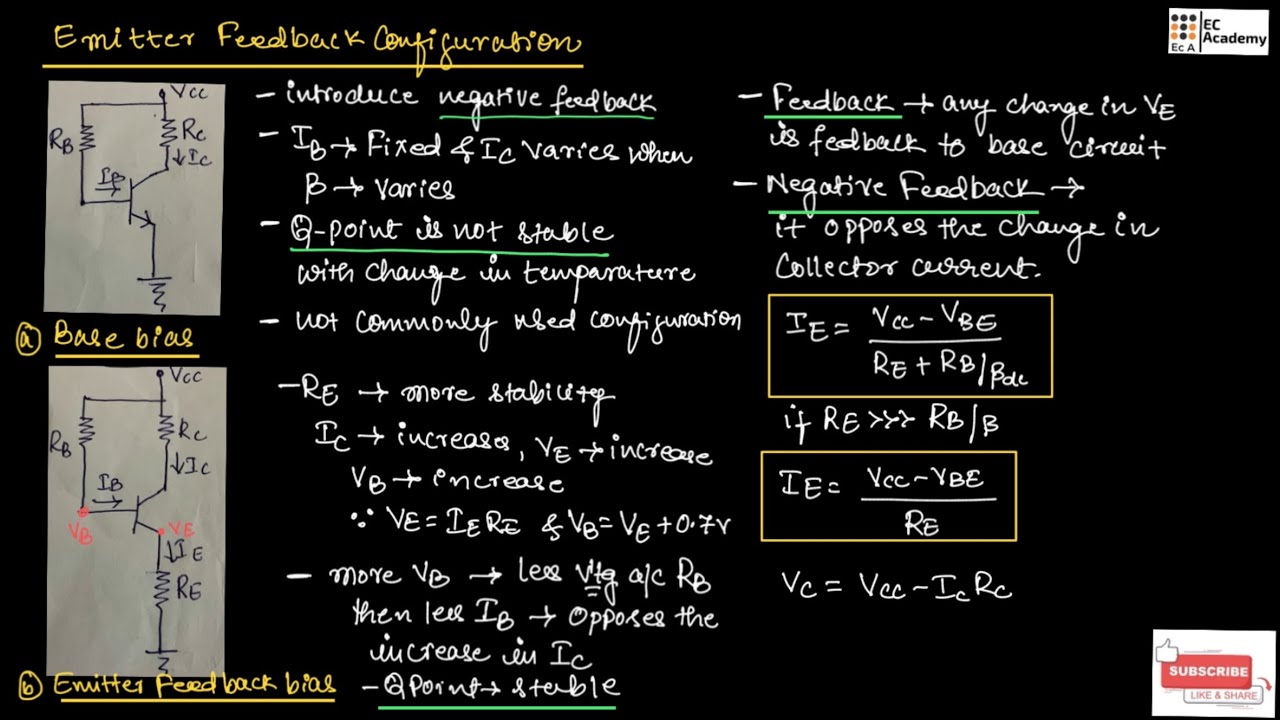 Emitter Feedback Configuration
EC
Academy
EC A
VCC
RB
RC
↓IC
IB
(a) Base bias
- introduce negative feedback
- IB → Fixed & IC varies when
β → varies
- Q-point is not stable
with change in temparature
- not commonly used configuration
VCC
RB
RC
↓IC
IB
VB
VE
↓IE
RE
(b) Emitter Feedback bias
- RE → more stability
IC → increases, VE → increase
VB → increase
∵ VE = IE RE & VB = VE + 0.7V
- more VB → less Vtg a/c RB
then less IB → opposes the
increase in IC
- Q Point → stable
- Feedback → any change in VE
is feedback to base circuit
- Negative Feedback →
it opposes the change in
Collector current.
IE = VCC - VBE / RE + RB/βdc
if RE >>> RB/β
IE = VCC - VBE / RE
VC = VCC - IC RC
SUBSCRIBE
LIKE & SHARE